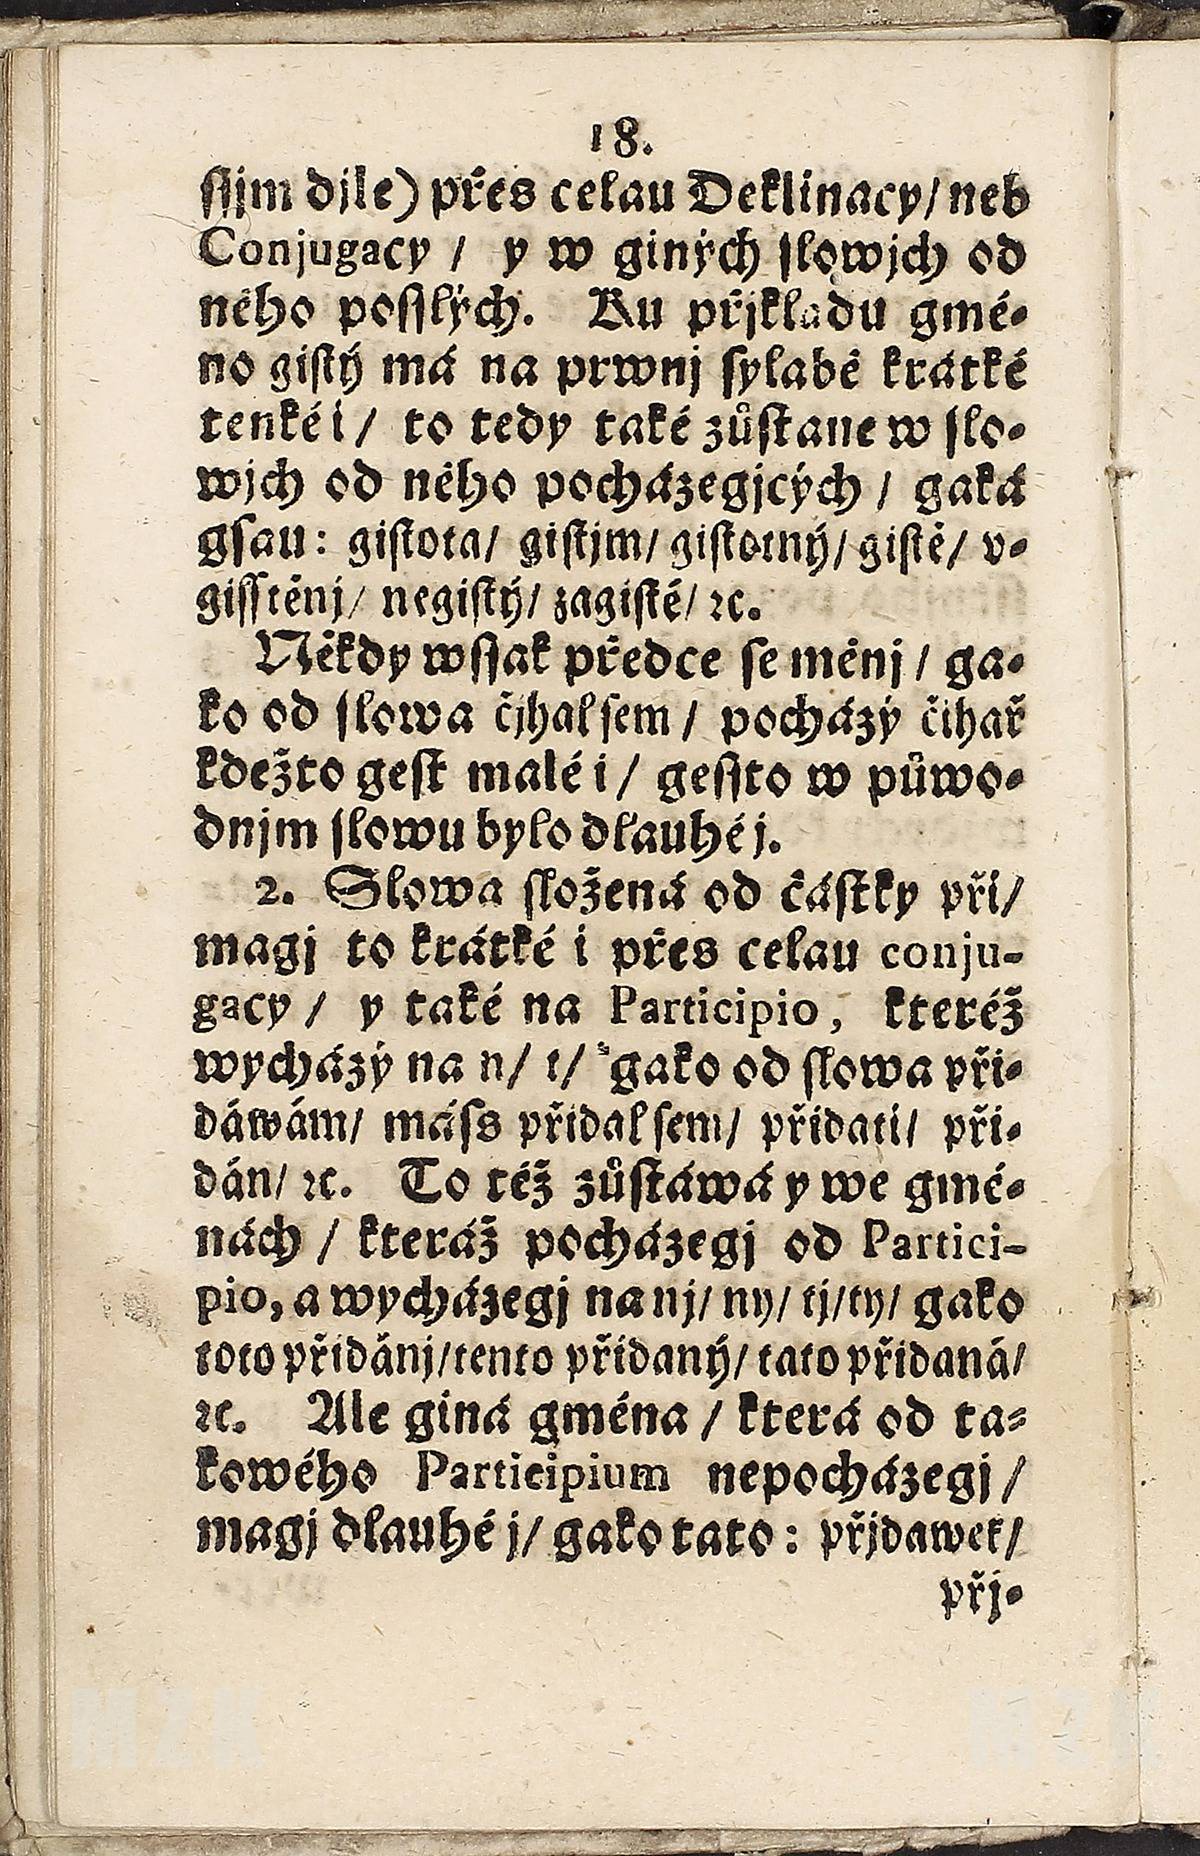 18.
ſſjm djle) přes celau Deklinacy/ neb
Conjugacy / y w giných ſlowjch od
něho poſſlých. Ku přjkladu gmé-
no giſtý má na prwnj ſylabě krátké
tenké i / to tedy také zůſtane w ſlo-
wjch od něho pocházegjcých / gaká
gſau: giſtota/ giſtjm/ giſtotný/ giſtě/ v-
giſſtěnj/ negiſtý/ zagiſté/ ꝛc.
Někdy wſſak předce ſe měnj / ga-
ko od ſlowa čjhal ſem / pocházý čihař
kdežto geſt malé i / geſſto w půwo-
dnjm ſlowu bylo dlauhé j.
2. Slowa ſložená od částky při/
magj to krátké i přes celau conju-
gacy / y také na Participio, kteréž
wycházý na n/ t/ gako od ſlowa při-
dáwám/ máſs přidal ſem/ přidati/ při-
dán/ ꝛc. To též zůſtáwá y we gmé-
nách / kteráž pocházegj od Partici-
pio, a wycházegj na nj/ ny/ tj/ ty/ gako
toto přidánj/ tento přidaný/ tato přidaná/
ꝛc. Ale giná gména / která od ta-
kowého Participium nepocházegj /
magj dlauhé j/ gako tato: přjdawek/
přj-
MZK
MZK